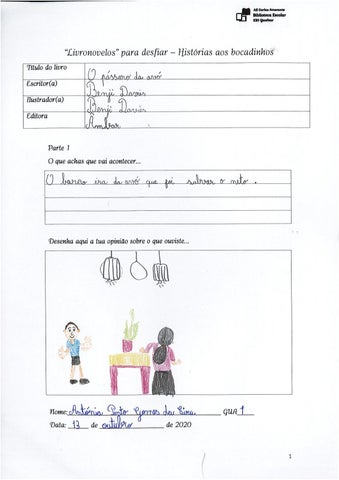 AE Carlos Amarante
Biblioteca Escolar
EB1 Gualtar
"Livronovelos" para desfiar – Histórias aos bocadinhos
Título do livro O pássaro da avó
Escritor(a) Benji Davis
Ilustrador(a) Benji Davis
Editora Ambar
Parte 1
O que achas que vai acontecer...
O barco ira da avó que foi salvar o neto .
Desenha aqui a tua opinião sobre o que ouviste...
Nome: António Gomes da GUA 1
Data: 13 de outubro de 2020
1